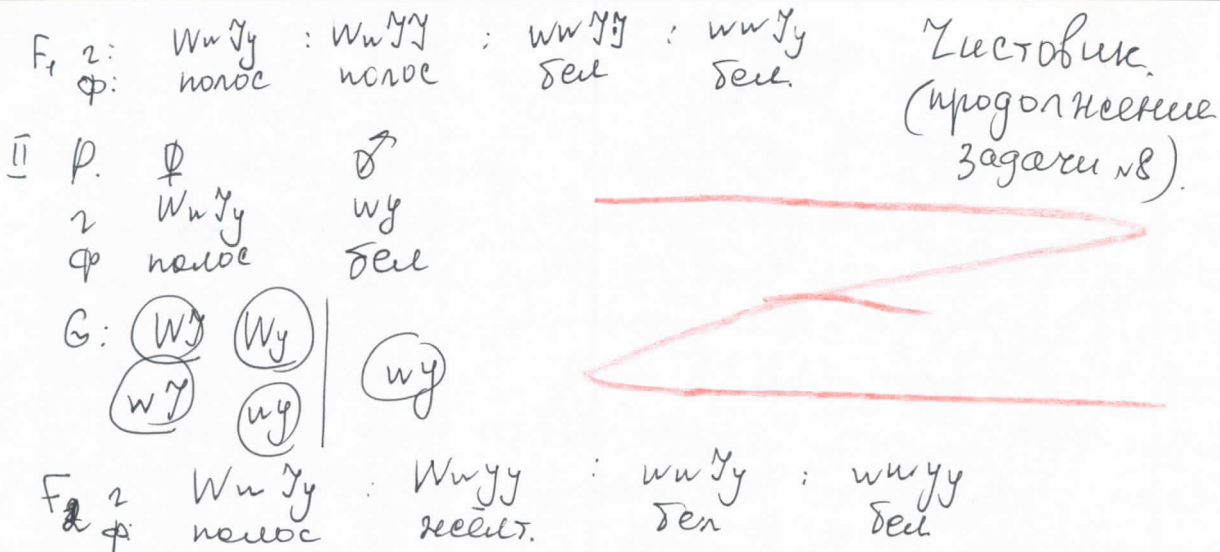 F₁ г: Ww Yy : Ww YY : ww YY : ww Yy
ф: полос полос бел бел.
Чистовик.
(продолжение
задачи №8).
II P. ♀ ♂
г Ww Yy wy
ф полос бел
G: WY Wy wy
wY wy
F₂ г Ww Yy : Ww yy : ww Yy : ww yy
ф. полос жёлт. бел бел